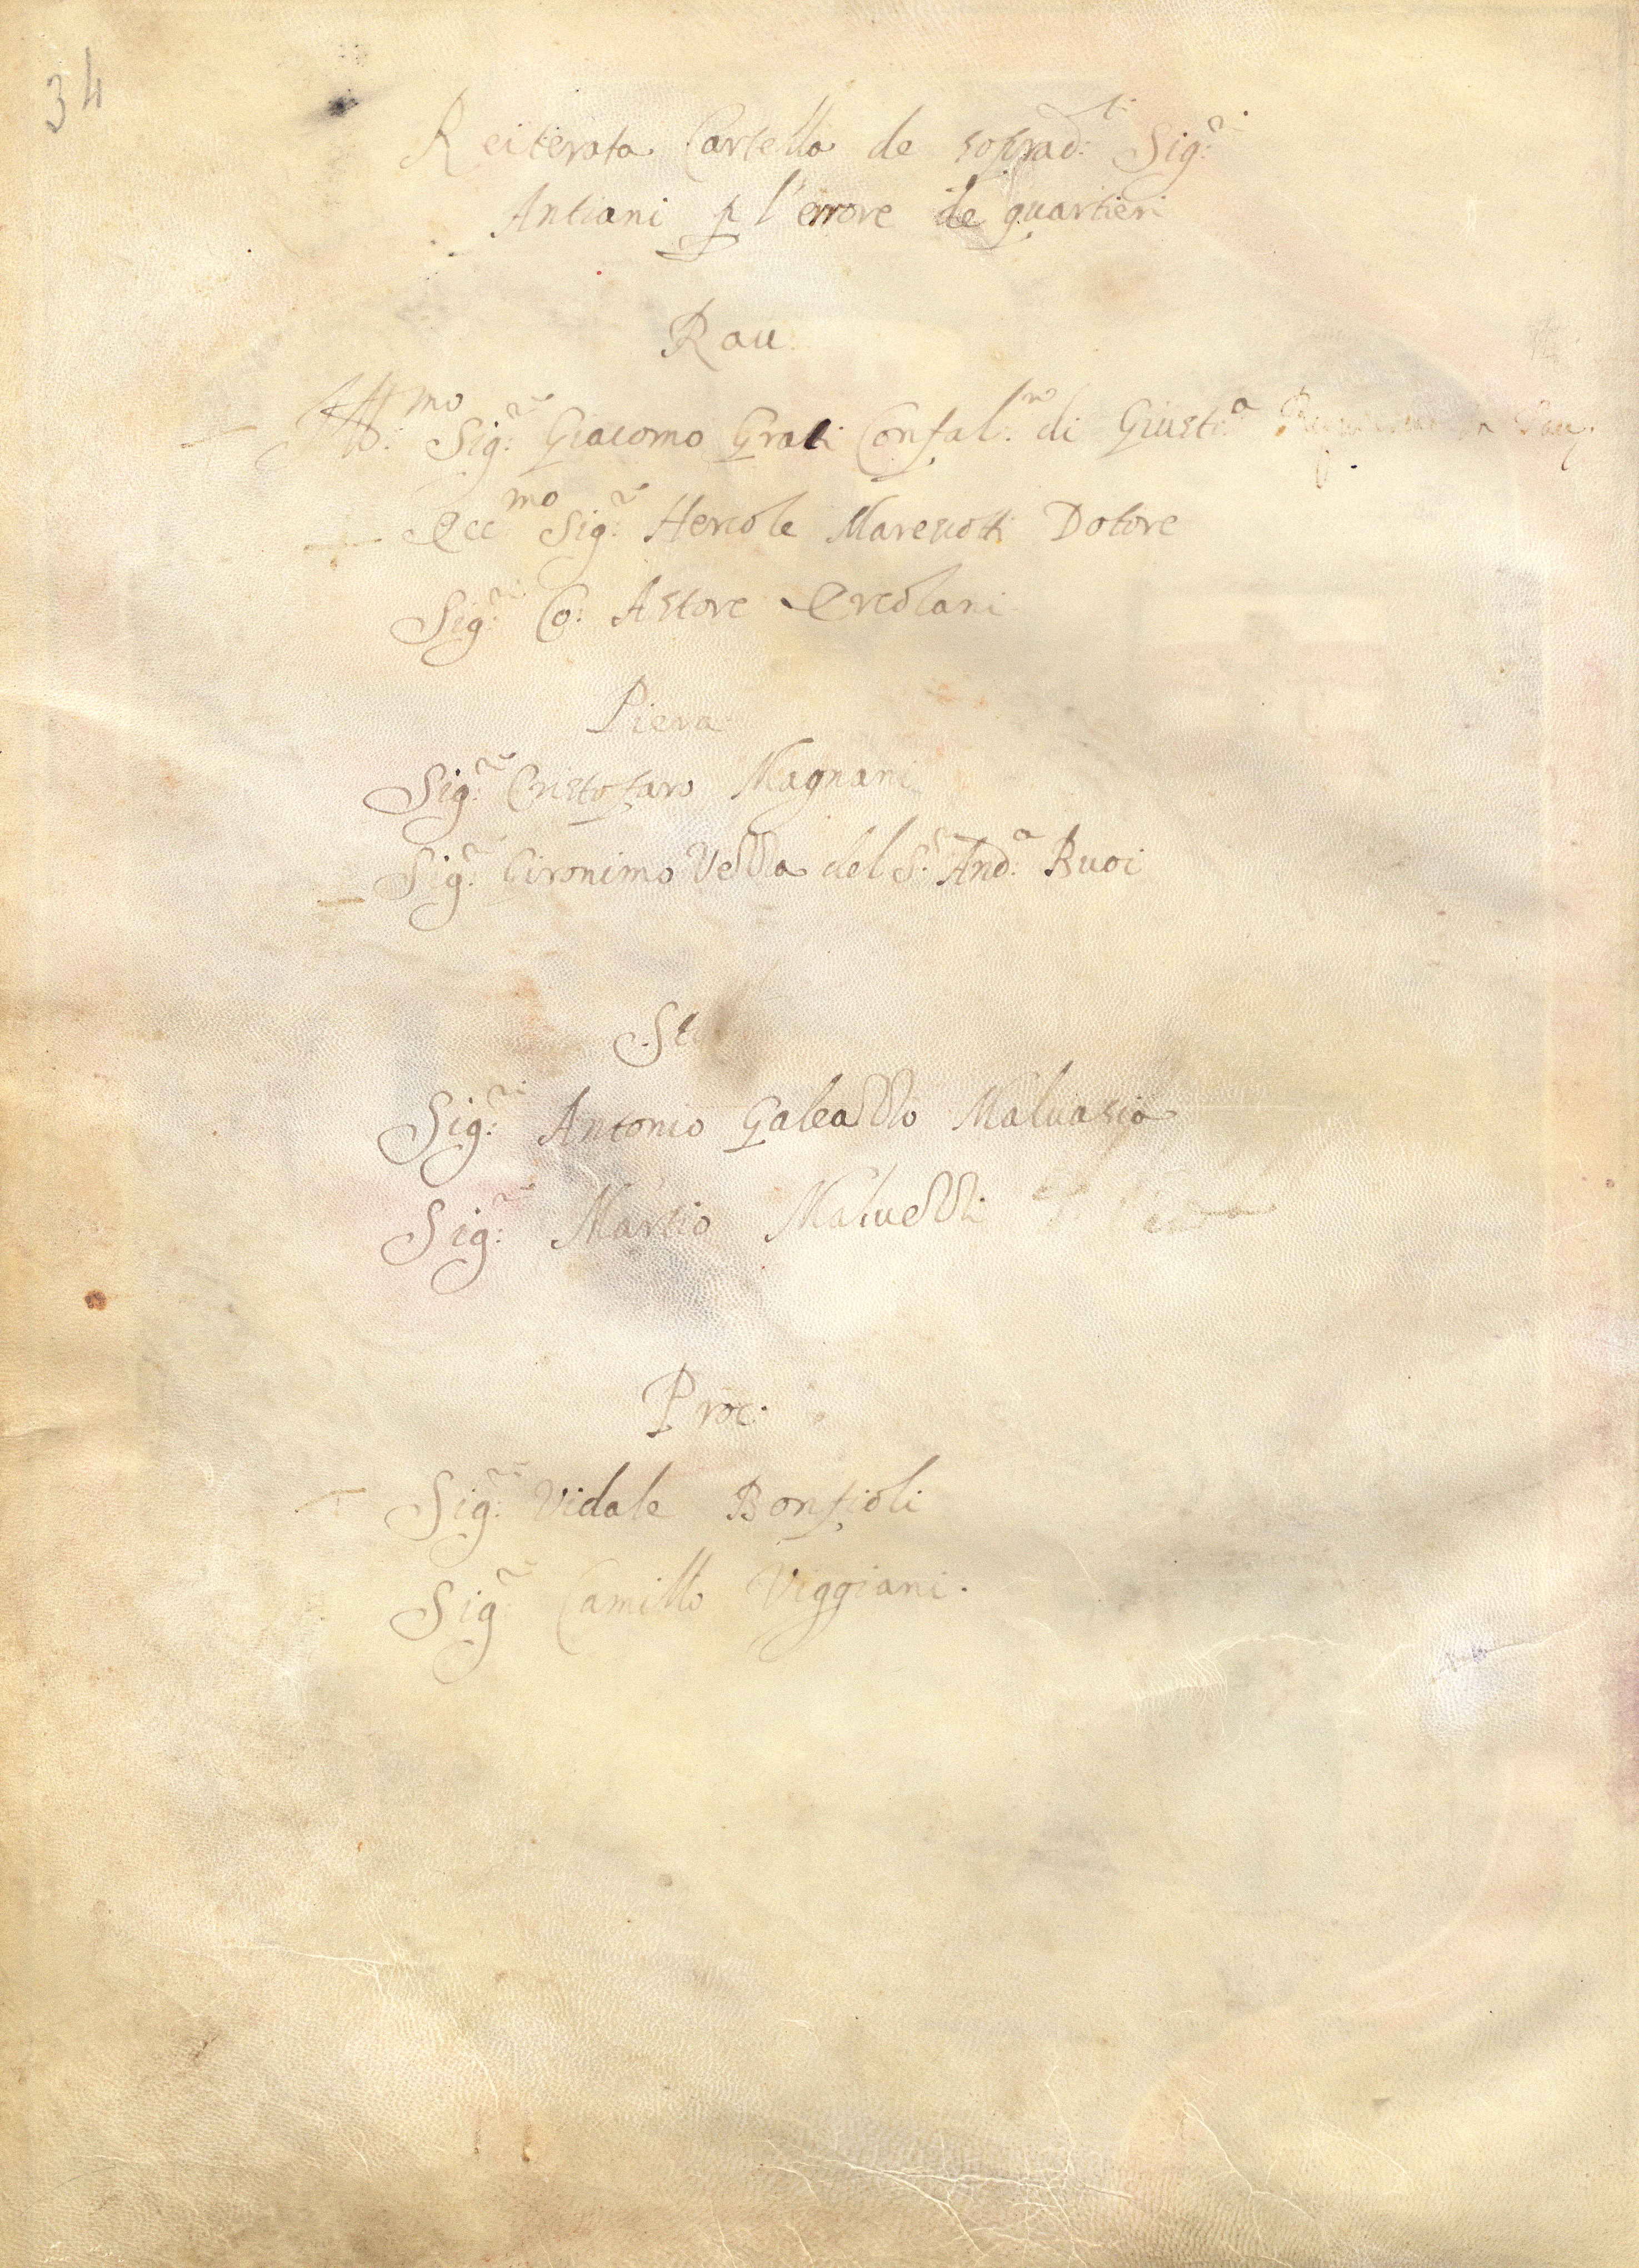 34
Reiterata Cartella de soprad:ti Sig:ri
Antiani p l'errore de quartieri
Rau:
Ill:mo Sig:re Giacomo Grati Confal:ro di Giust:a
Ecc:mo Sig:re Hercole Marescotti Dotore
Sig:re Co: Astore Ercolani
Piera
Sig:re Cristofaro Magnani
Sig:re Gironimo Vezza del S:r And:a Buoi
St
Sig:re Antonio Galeazzo Maluasia
Sig:re Martio Maluezzi
Proc:
Sig:re Vidale Bonfioli
Sig:re Camillo Viggiani.